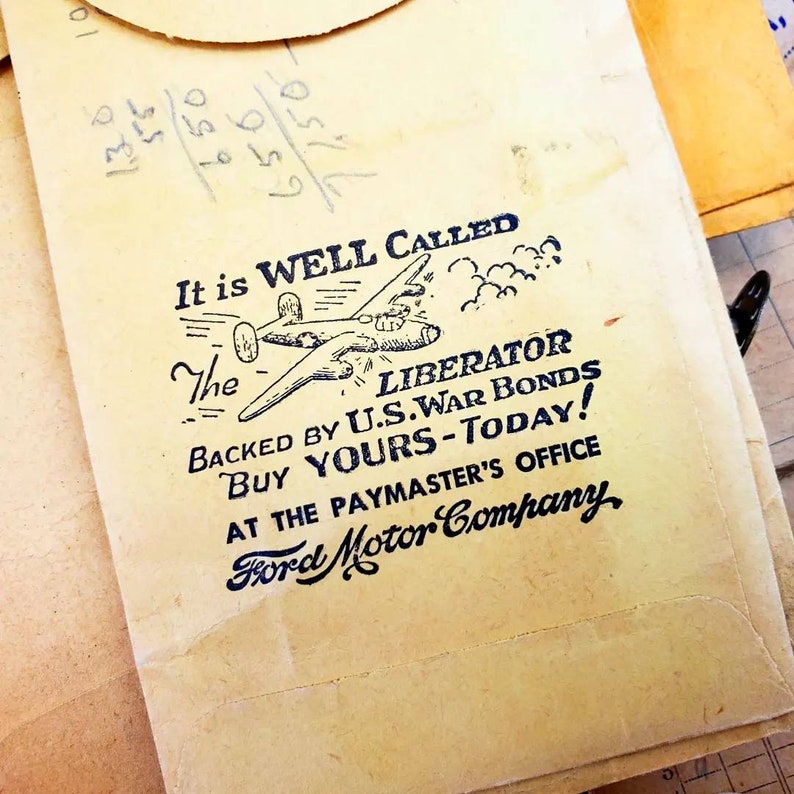 It is WELL CALLED
The LIBERATOR
BACKED BY U.S. WAR BONDS
BUY YOURS-TODAY!
AT THE PAYMASTER'S OFFICE
Ford Motor Company